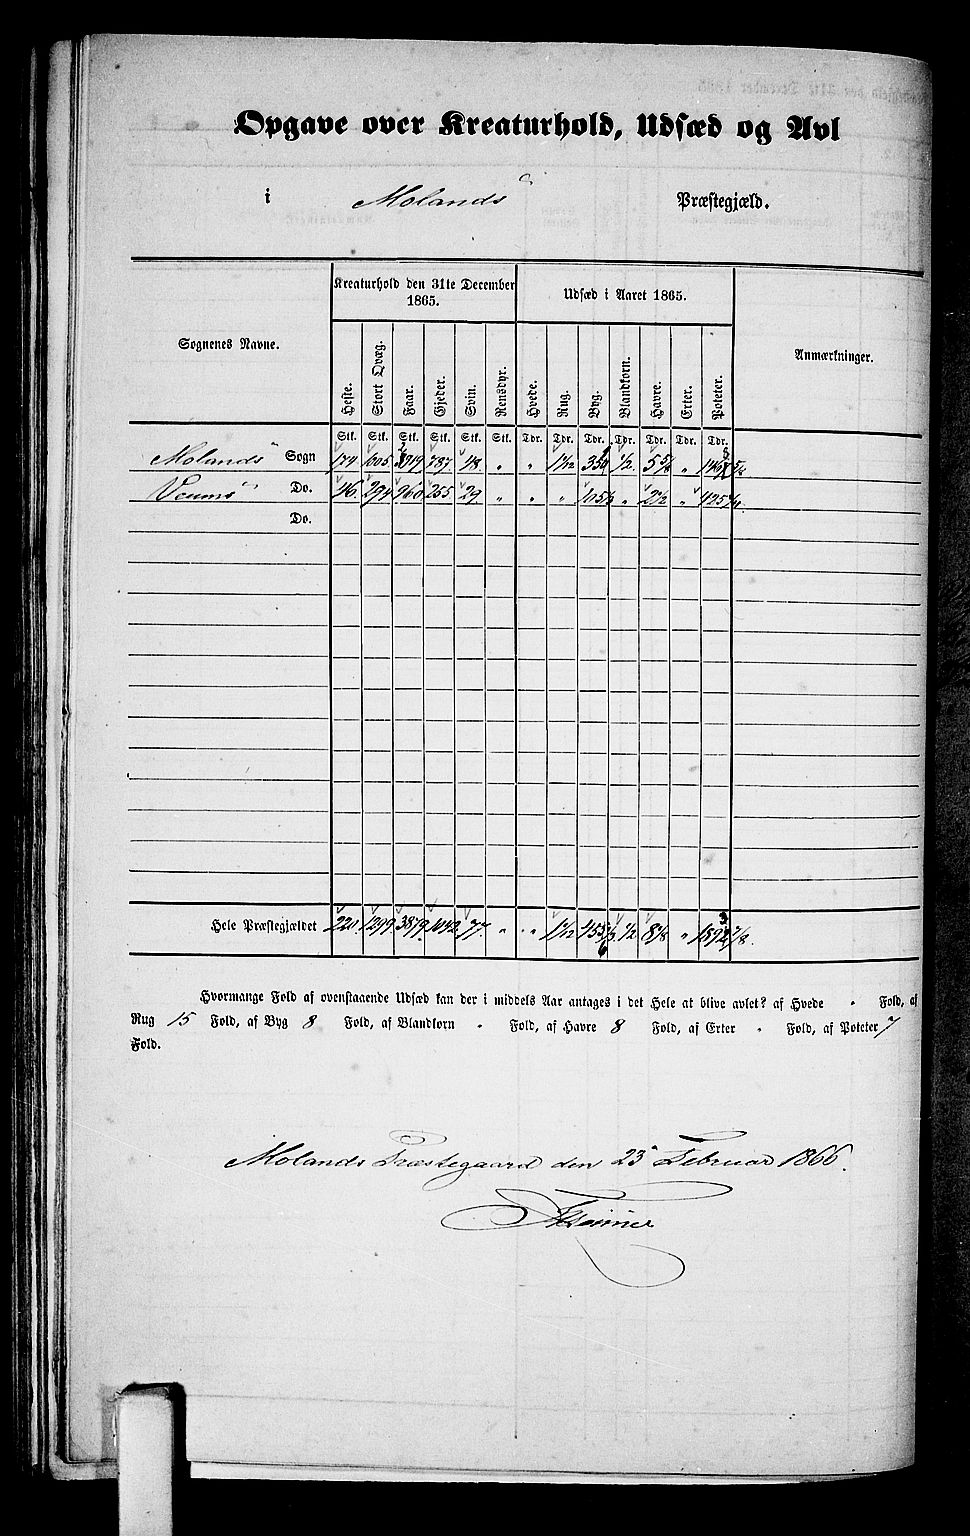 Opgave over Kreaturhold, Udsæd og Avl
i Molands Præstegjæld.
Sognenes Navne. Kreaturhold den 31te December 1865. Udsæd i Aaret 1865. Anmærkninger.
Heste. Stort Qvæg. Faar. Gjeder. Svin. Rensdyr. Hvede. Rug. Byg. Blandkorn. Havre. Erter. Poteter.
Stk. Stk. Stk. Stk. Stk. Stk. Tdr. Tdr. Tdr. Tdr. Tdr. Tdr. Tdr.
Molands Sogn 174 1005. 787. 48. „ „ 1 1/12 1/2. 5 5/8 „
Veums Do. 46. 294 960 255. 29. „ „ „ 105 „ 2 1/2 „ 425
Do.
Hele Præstegjældet 220. 1299. 3879. 1042. 77. „ „ 1 1/12 455 1/2 8 1/8 „
Hvormange Fold af ovenstaaende Udsæd kan der i middels Aar antages i det Hele at blive avlet? af Hvede „ Fold, af
Rug 15 Fold, af Byg 8 Fold, af Blandkorn „ Fold, af Havre 8 Fold, af Erter „ Fold, af Poteter 7
Fold.
Molands Præstegaard den 23 Februar 1866.